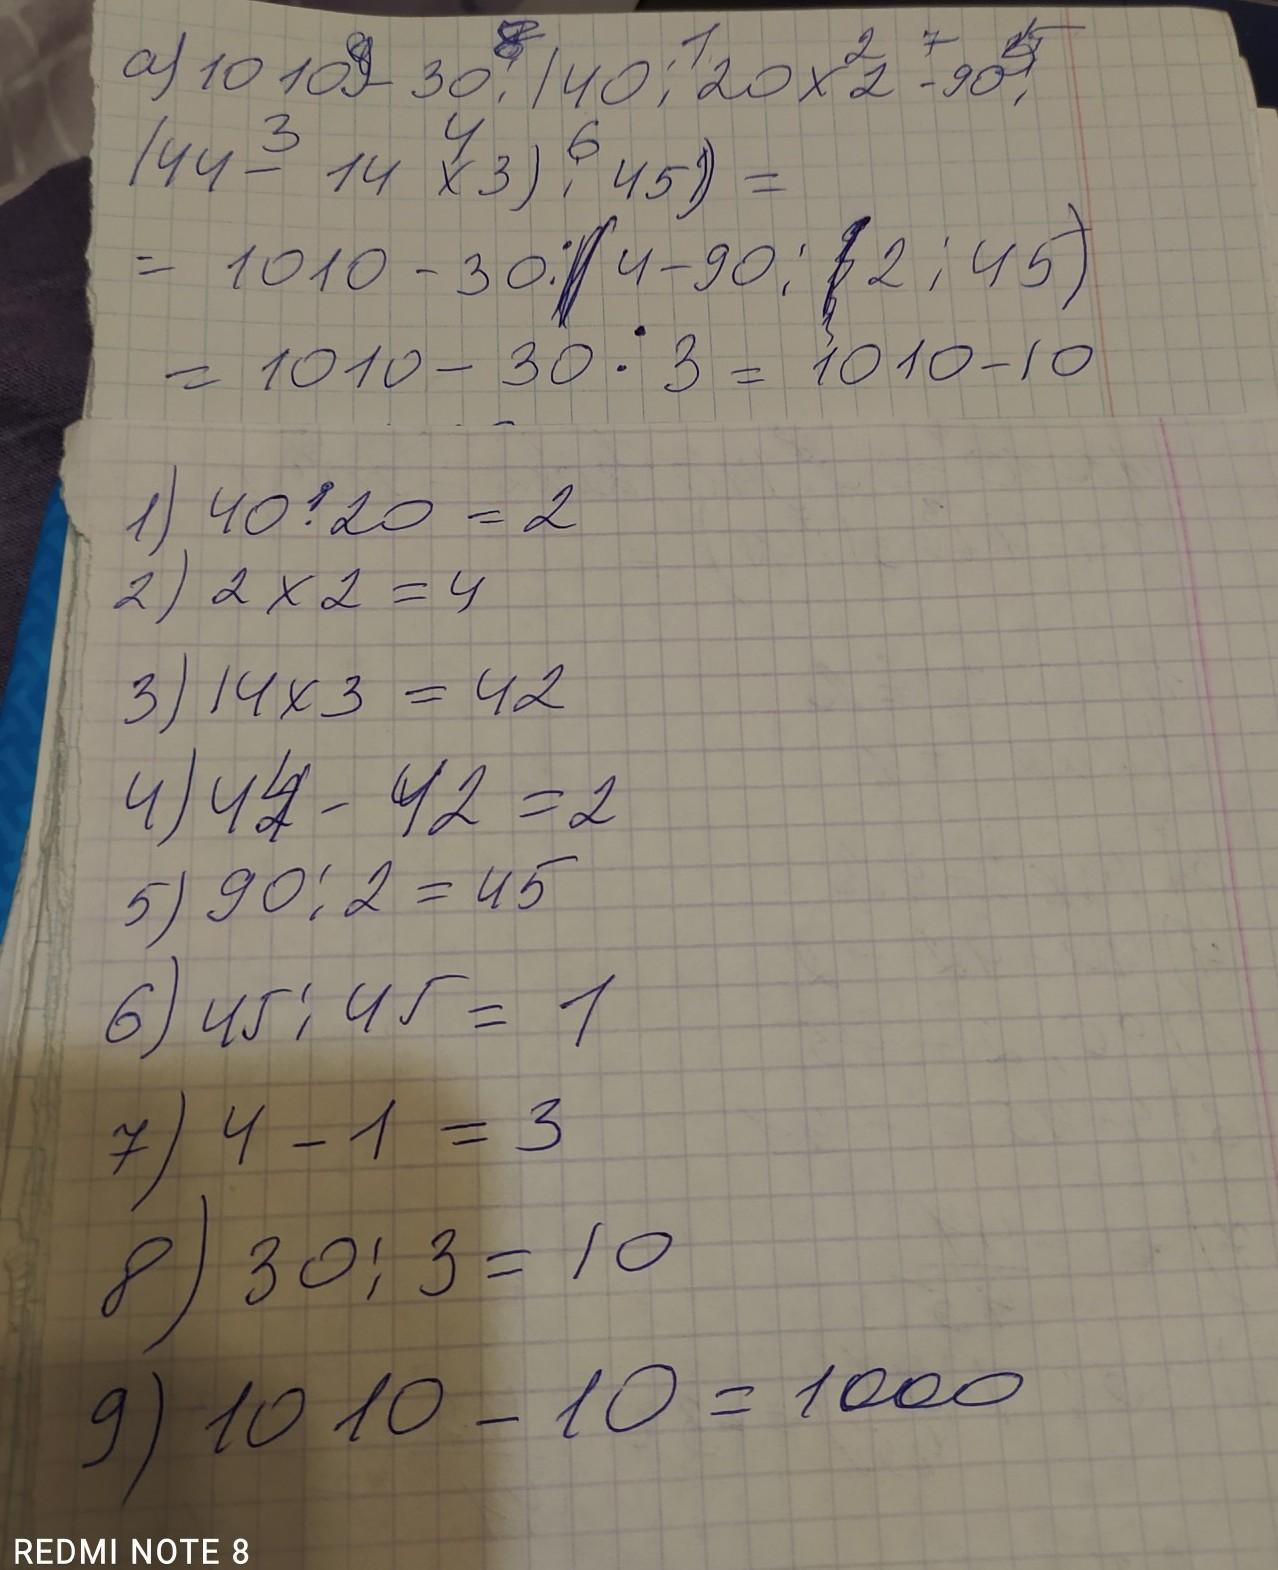 а) 1010 - 30 : (40 : 20 x 2 - 90 :
(44 - 14 x 3) : 45) =
= 1010 - 30 : (4 - 90 : 2 : 45)
= 1010 - 30 : 3 = 1010 - 10
1) 40 : 20 = 2
2) 2 x 2 = 4
3) 14 x 3 = 42
4) 44 - 42 = 2
5) 90 : 2 = 45
6) 45 : 45 = 1
7) 4 - 1 = 3
8) 30 : 3 = 10
9) 1010 - 10 = 1000
REDMI NOTE 8